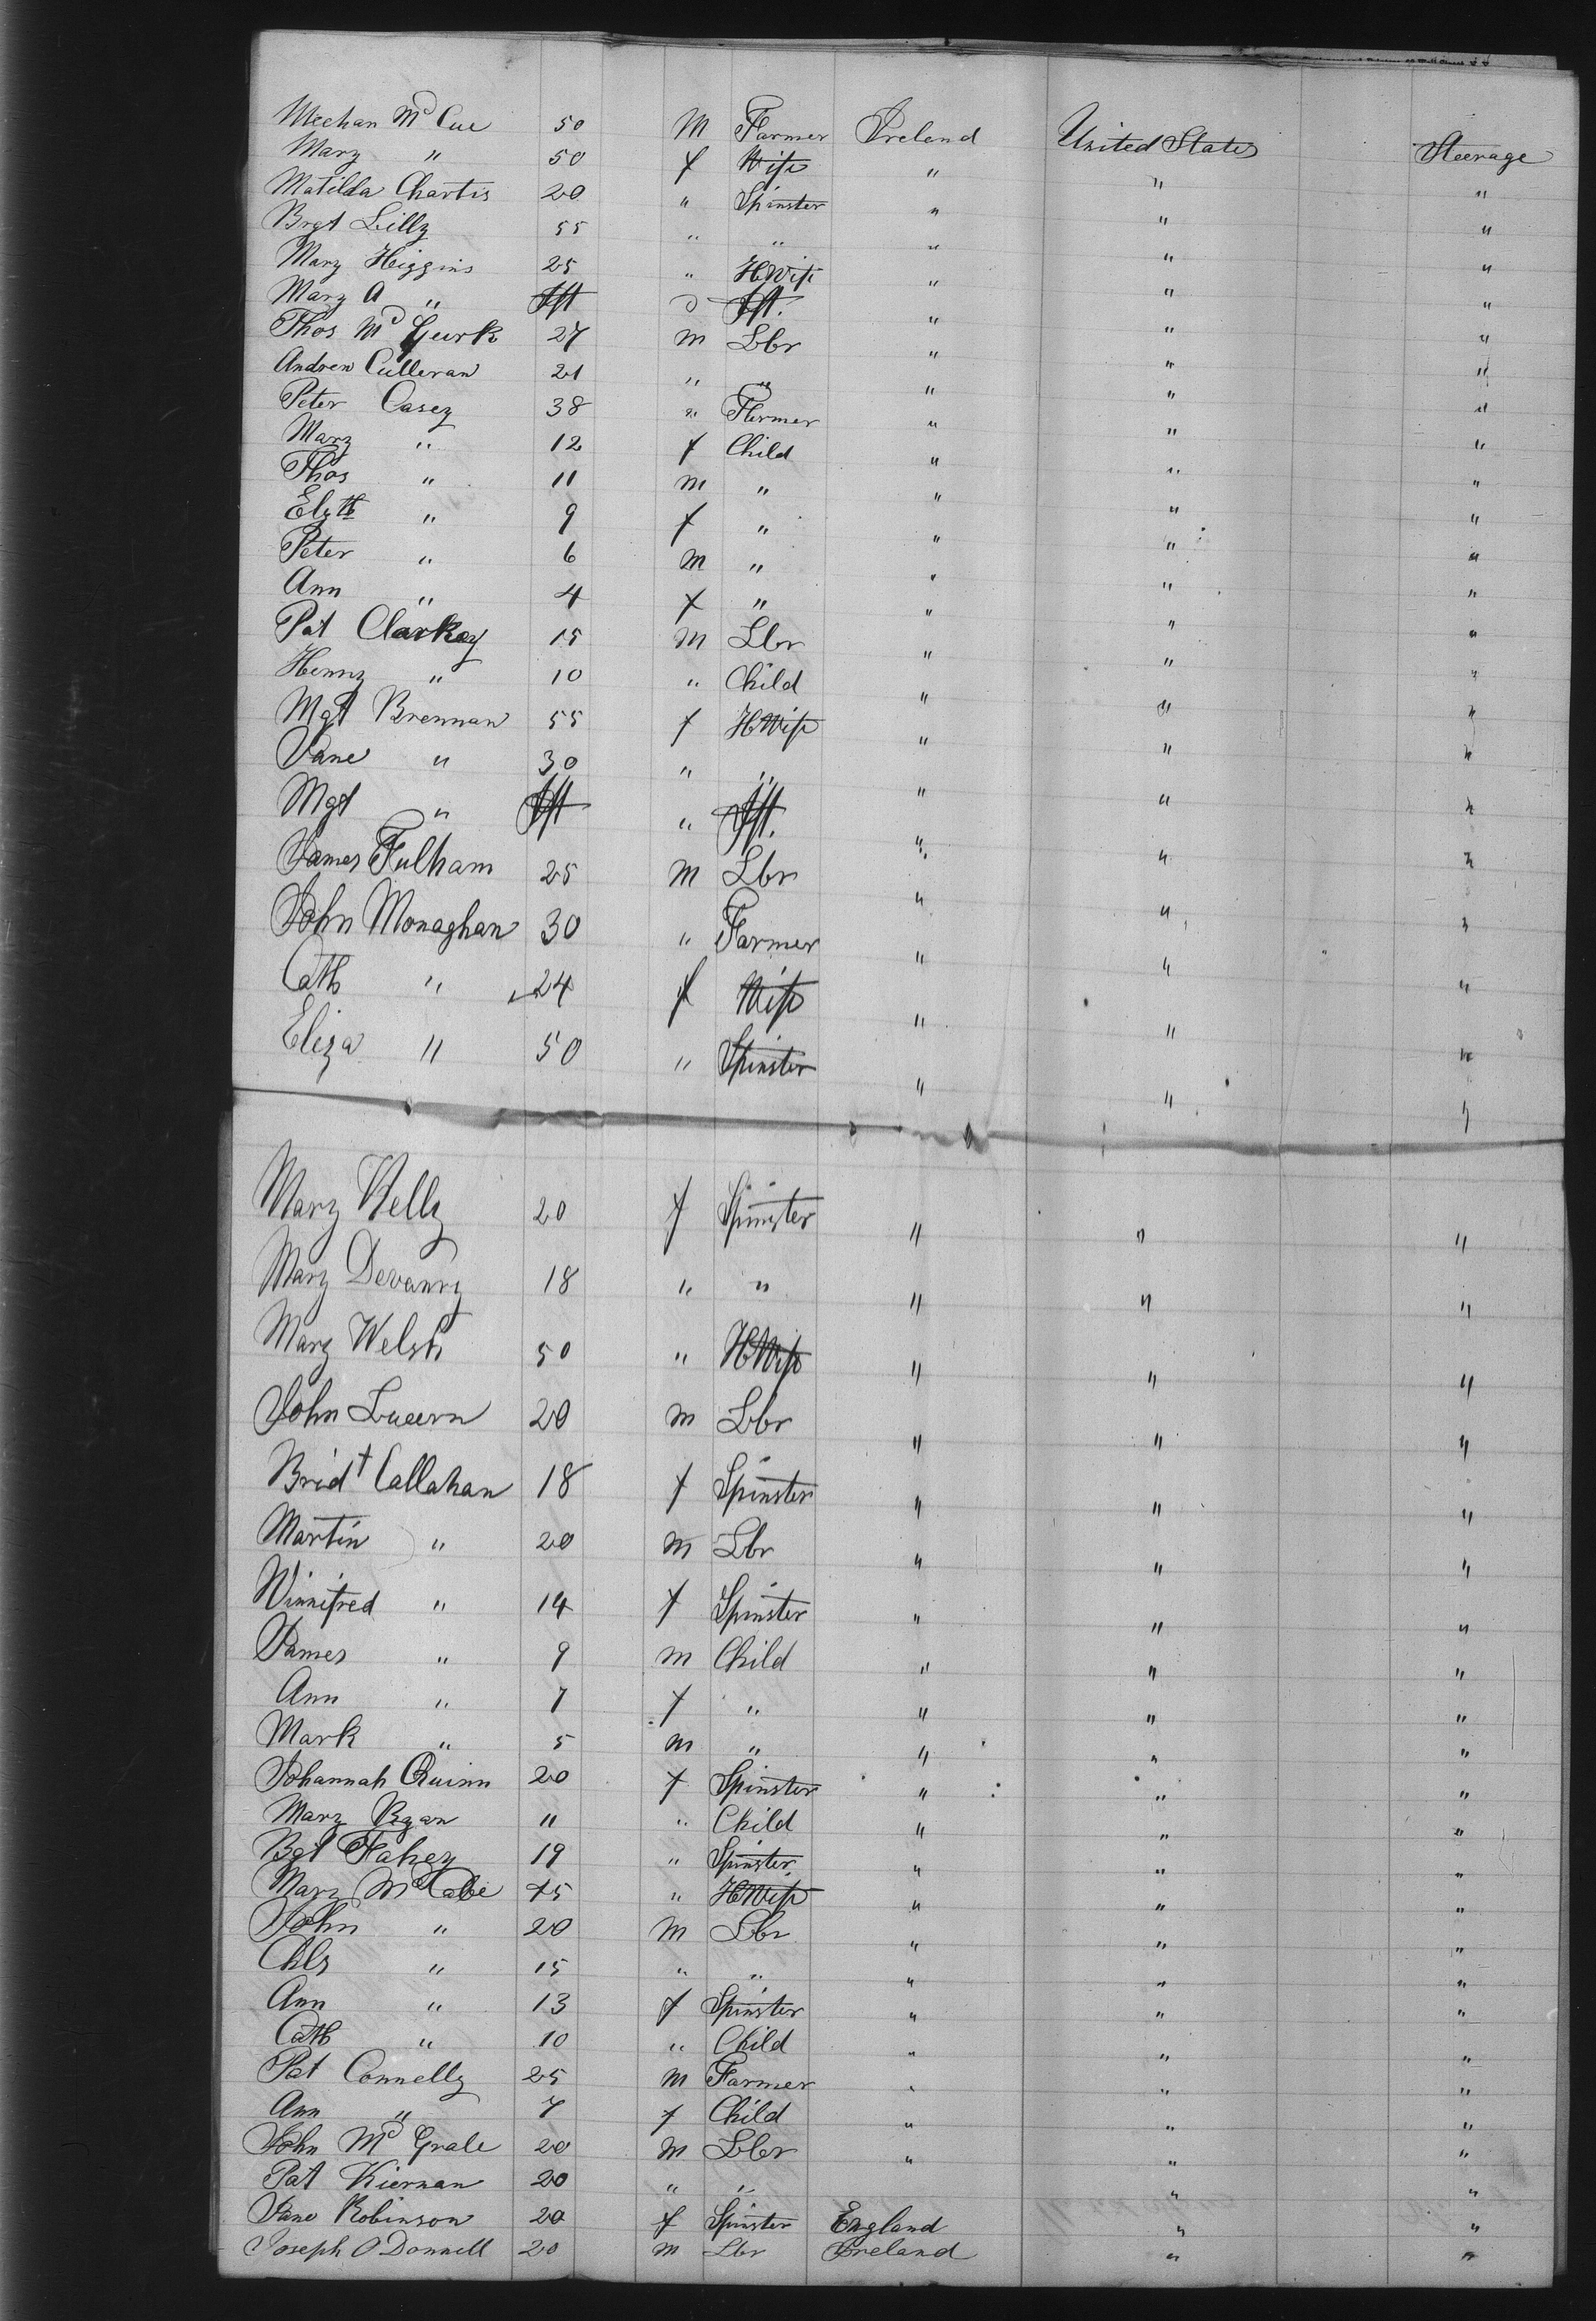 Meehan McCue 50 M Farmer Ireland United States Steerage
Mary " 50 f Wife " " "
Matilda Chartis 20 " Spinster " " "
Brgt Lilly 55 " " " " "
Mary Higgins 25 " HWife " " "
Mary A " Ift " Ift. " " "
Thos McGurk 27 m Lbr " " "
Andrew Culleran 21 " " " " "
Peter Casey 38 " Farmer " " "
Mary " 12 f Child " " "
Thos " 11 m " " " "
Elzth " 9 f " " " "
Peter " 6 m " " " "
Ann " 4 f " " " "
Pat Clarkey 15 m Lbr " " "
Henry " 10 " Child " " "
Mgt Brennan 55 f HWife " " "
Jane " 30 " " " " "
Mgt " Ift " Ift. " " "
James Fulham 25 m Lbr " " "
John Monaghan 30 " Farmer " " "
Cath " 24 f Wife " " "
Eliza " 50 " Spinster " " "
Mary Kelly 20 f Spinster " " "
Mary Devanry 18 " " " " "
Mary Welsh 50 " HWife " " "
John Lucern 20 m Lbr " " "
Bridt Callahan 18 f Spinster " " "
Martin " 20 m Lbr " " "
Winnifred " 14 f Spinster " " "
James " 9 m Child " " "
Ann " 7 f " " " "
Mark " 5 m " " " "
Johannah Quinn 20 f Spinster " " "
Mary Ryan 11 " Child " " "
Bgt Fahey 19 " Spinster " " "
Mary McCabe 45 " HWife " " "
John " 20 m Lbr " " "
Chls " 15 " " " " "
Ann " 13 f Spinster " " "
Cath " 10 " Child " " "
Pat Connelly 25 m Farmer " " "
Ann " 7 f Child " " "
John McGrale 20 m Lbr " " "
Pat Kiernan 20 " " " "
Jane Robinson 20 f Spinster England " "
Joseph O Donnell 20 m Lbr Ireland " "